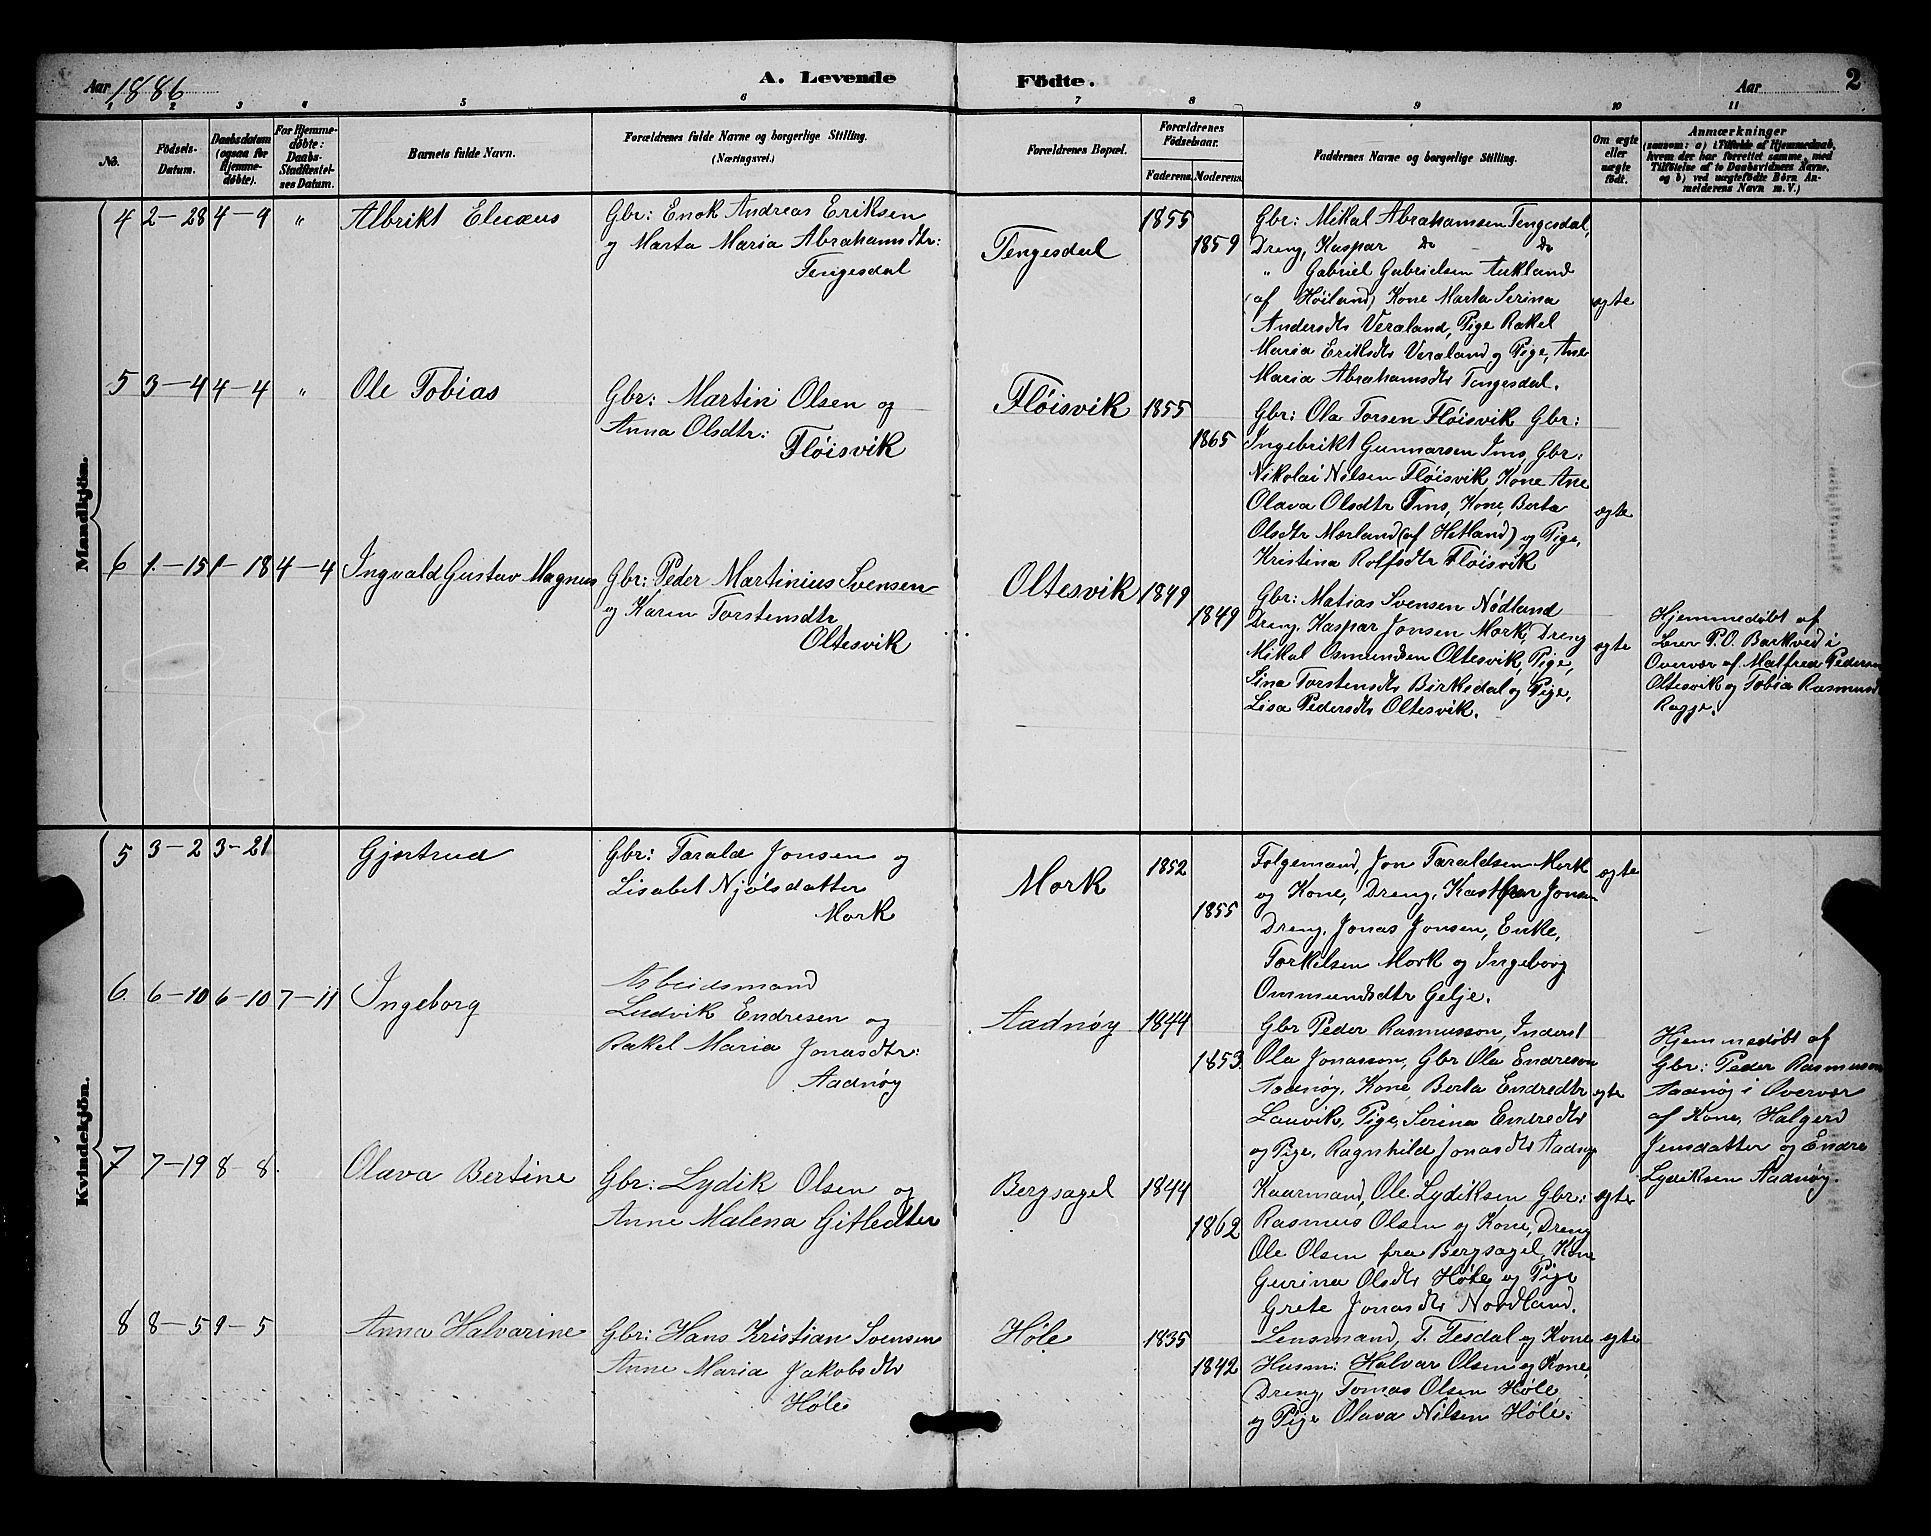 Aar 1886
A. Levende
Födte.
Aar
2
1 2 3 4 5 6 7 8 9 10 11
No.
Födsels-Datum.
Daabsdatum (ogsaa for Hjemme-döbte).
For Hjemme-döbte: Daabs-Stadfæstel-ses Datum.
Barnets fulde Navn.
Forældrenes fulde Navne og borgerlige Stilling. (Næringsvei.)
Forældrenes Bopæl.
Forældrenes Födselsaar.
Faderens. Moderens.
Faddernes Navne og borgerlige Stilling.
Om ægte eller uægte födt.
Anmærkninger
(saasom: a) i Tilfælde af Hjemmedaab, hvem der har forrettet samme, med Tilföielse af to Daabsvidners Navne, og b) ved uægtefödte Börn An-melderens Navn m. V.)
Mandkjön.
4 2–28 4–9 " Albrikt Elicæus
Gbr: Enok Andreas Eriksen
og Marta Maria Abrahamsdtr:
Tengesdal
Tengesdal
1855
1859
Gbr: Mikal Abrahamsen Tengesdal,
Dreng, Kaspar do - do
" Gabriel Gabrielsen Aukland
(af Høiland) Kone Marta Serina
Andersdtr Veraland, Pige Rakel
Maria Eriksdtr Veraland og Pige, Ane
Maria Abrahamsdtr Tengesdal.
ægte
5 3–4 4–4 " Ole Tobias
Gbr: Martin Olsen og
Anna Olsdtr:
Fløisvik
Fløisvik
1855
1865
Gbr: Ola Torsen Fløisvik Gbr:
Ingebrikt Gunnarsen Ims, Gbr:
Nikolai Nilsen Fløisvik, Kone Ane
Olava Olsdtr Ims, Kone, Berta
Olsdtr Mærland (af Hetland) og Pige,
Kristina Rolfsdtr Fløisvik
ægte
6 1–15 1–18 4–4 Ingvald Gustav Magnus
Gbr: Peder Martinius Svensen
og Karen Torstensdtr
Oltesvik
Oltesvik
1849
1849
Gbr: Matias Svensen Nødland
Dreng, Kaspar Jonsen Mork, Dreng
Mikal Osmundsen Oltesvik, Pige,
Sina Torstensdtr Birkedal og Pige,
Lisa Pedersdtr Oltesvik.
ægte
Hjemmedøbt af
Lærer P.O. Barkved i
Overvær af Malfred Pedersen
Oltesvik og Tobia Rasmusd
Ragje.
Kvindekjön.
5 3–2 3–21 Gjertrud
Gbr: Tarald Jonsen og
Lisabet Njølsdatter
Mork
Mork
1852
1855
Følgemand, Jon Taraldsen Mork
og Kone, Dreng, Kasper Jonsen
Dreng, Jonas Jonsen, Enke,
Torkelsen Mork og Ingeborg
Ommundsdtr Gelje.
ægte
6. 6–10 6–10 7–11 Ingeborg
Arbeidsmand
Ludvik Endresen og
Rakel Maria Jonasdtr:
Aadnøy
Aadnøy
1844
1853
Gbr Peder Rasmusson, Inderst
Ola Jonasson, Gbr Ola Endreson
Aadnøy, Kone, Berta Endredtr
Lauvik, Pige, Serina Endredtr
og Pige, Ragnhild Jonasdtr Aadnøy
ægte
Hjemmedøbt af
Gbr: Peder Rasmusson
Aadnøy i Overvær
af Kone, Halgerd
Jensdatter og Endre
Lydiksen Aadnøy.
7 7–19 8–8 Olava Bertine
Gbr: Lydik Olsen og
Anne Malena Gitledtr
Bergsagel
1844
1862
Kaarmand, Ole Lydiksen Gbr:
Rasmus Olsen og Kone, Dreng
Ole Olsen fra Bergsagel, Kone
Gurina Olsdtr Høle og Pige
Grete Jonasdtr Nordland.
ægte
8 8–5 9–5 Anna Halvarine
Gbr: Hans Kristian Svensen
Anne Maria Jakobsdtr
Høle
Høle
1835
1842
Lensmand, T. Tesdal og Kone
Husm: Halvar Olsen og Kone,
Dreng, Tomas Olsen Høle
og Pige Olava Nilsen Høle.
ægte